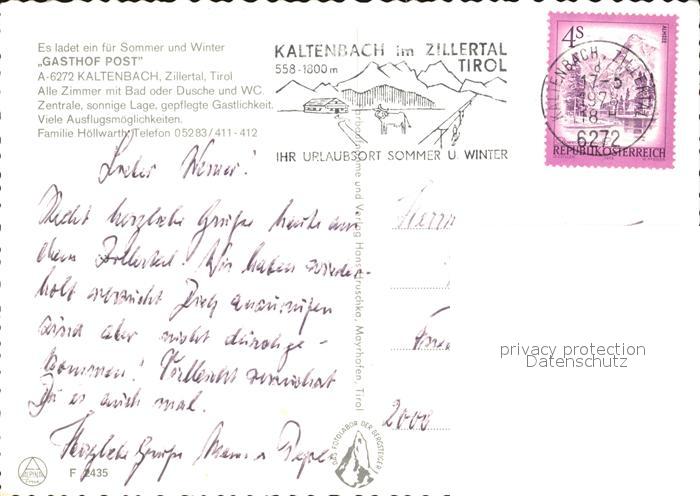 Es ladet ein für Sommer und Winter
„GASTHOF POST"
A-6272 KALTENBACH, Zillertal, Tirol
Alle Zimmer mit Bad oder Dusche und WC.
Zentrale, sonnige Lage, gepflegte Gastlichkeit.
Viele Ausflugsmöglichkeiten.
Familie Höllwarth, Telefon 05283/411-412
KALTENBACH im ZILLERTAL
558-1800m TIROL
IHR URLAUBSORT SOMMER U. WINTER
4S
ALMSEE
REPUBLIK ÖSTERREICH
KALTENBACH, ZILLERTAL
6272
Lieber Werner!
Recht herzliche Grüße heute aus
dem Zillertal! Wir haben wieder-
holt versucht Dich anzurufen
sind aber nicht durchge-
kommen! Vielleicht versuchst
Du es auch mal.
Herzliche Grüße
Herrn
2000
und Verlag Hans Hruschka, Mayrhofen, Tirol
DAS FOTOLABOR DER BERGSTEIGER
F 2435
privacy protection
Datenschutz